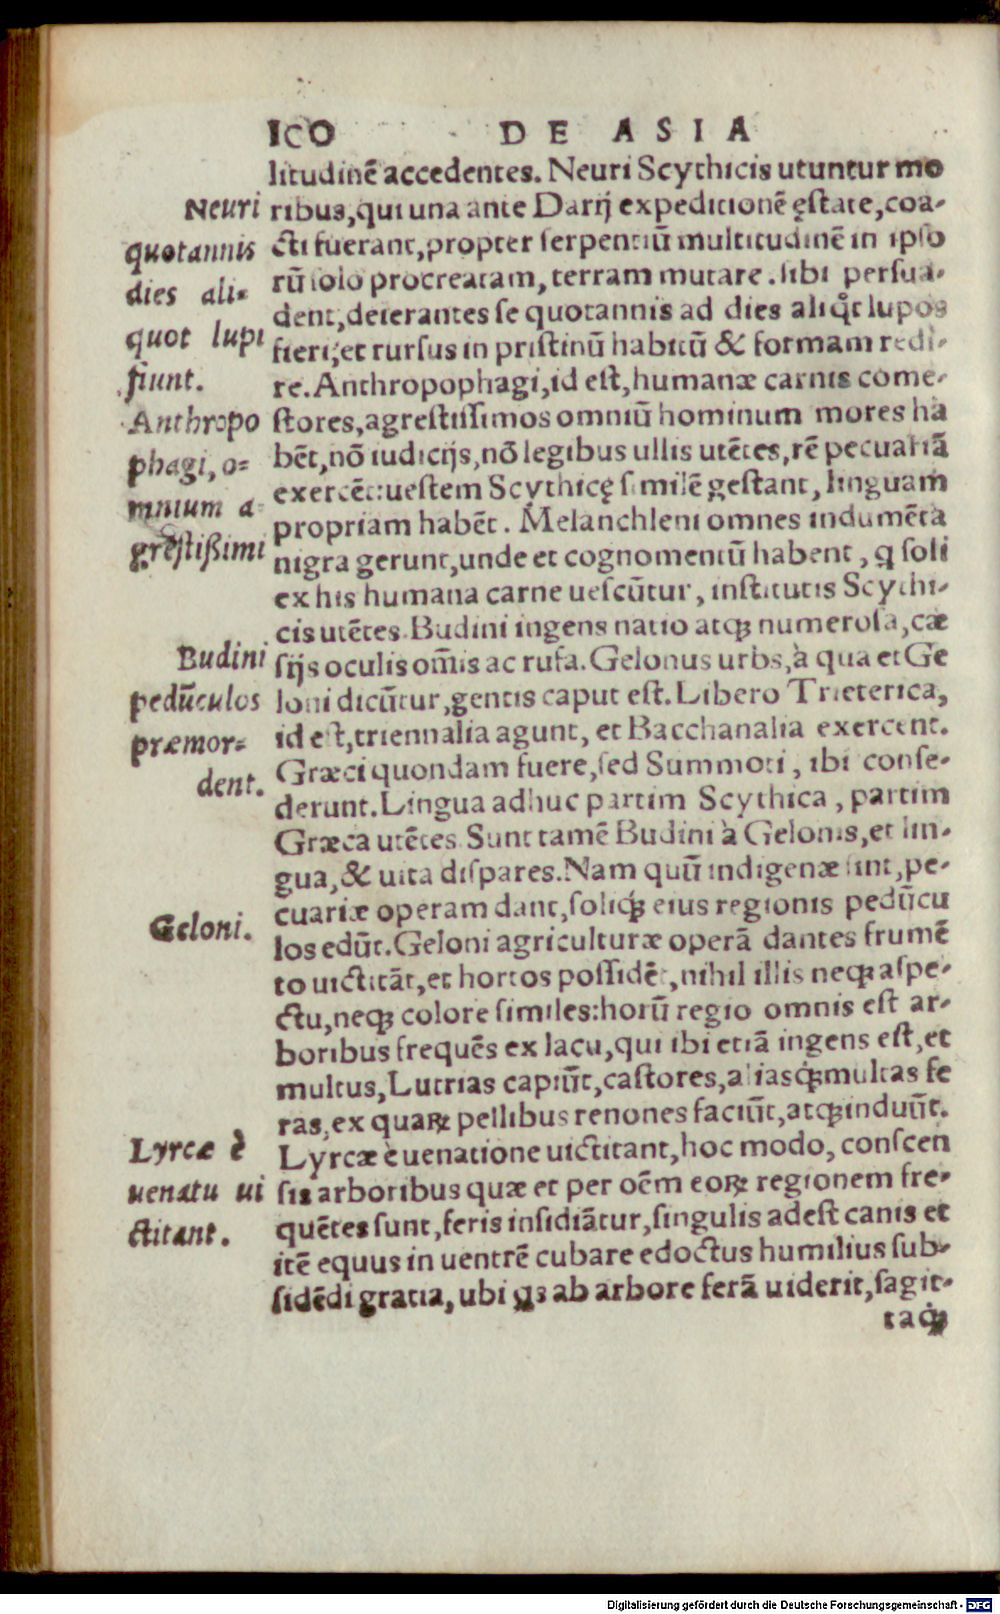 ICO DE ASIA
litudinē accedentes. Neuri Scythicis utuntur mo
ribus, qui una ante Darij expeditionē ęstate, coa-
cti fuerant, propter serpentiū multitudinē in ipso
rū solo procreatam, terram mutare. sibi persua-
dent, deierantes se quotannis ad dies aliqt lupos
fieri, et rursus in pristinū habitū & formam redi-
re. Anthropophagi, id est, humanæ carnis come-
stores, agrestissimos omniū hominum mores ha
bēt, nō iudicijs, nō legibus ullis utētes, rē pecuariā
exercēt: uestem Scythicę similē gestant, linguam
propriam habēt. Melanchleni omnes indumēta
nigra gerunt, unde et cognomentū habent, q soli
ex his humana carne uescūtur, institutis Scythi-
cis utētes. Budini ingens natio atqꝫ numerosa, cæ
sijs oculis om̄is ac rufa. Gelonus urbs, à qua et Ge
loni dicūtur, gentis caput est. Libero Trieterica,
id est, triennalia agunt, et Bacchanalia exercent.
Græci quondam fuere, sed Summoti, ibi conse-
derunt. Lingua adhuc partim Scythica, partim
Græca utētes. Sunt tamē Budini à Gelonis, et lin-
gua, & uita dispares. Nam quū indigenæ sint, pe-
cuariæ operam dant, soliqꝫ eius regionis pedūcu
los edūt. Geloni agriculturæ operā dantes frumē
to uictitāt, et hortos possidēt, nihil illis neqꝫ aspe-
ctu, neqꝫ colore similes: horū regio omnis est ar-
boribus frequēs ex lacu, qui ibi etiā ingens est, et
multus, Lutrias capiūt, castores, aliasqꝫ multas fe
ras, ex quaꝝ pellibus renones faciūt, atqꝫ induūt.
Lyrcæ è uenatione uictitant, hoc modo, conscen
sis arboribus quæ et per oēm eoꝝ regionem fre-
quētes sunt, feris insidiātur, singulis adest canis et
itē equus in uentrē cubare edoctus humilius sub-
sidēdi gratia, ubi qs ab arbore ferā uiderit, sagit-
taqꝫ
Neuri
quotannis
dies ali=
quot lupi
fiunt.
Anthropo
phagi, o=
mnium a
grestißimi
Budini
pedūculos
præmor=
dent.
Geloni.
Lyrcæ è
uenatu ui
ctitant.
Digitalisierung gefördert durch die Deutsche Forschungsgemeinschaft - DFG